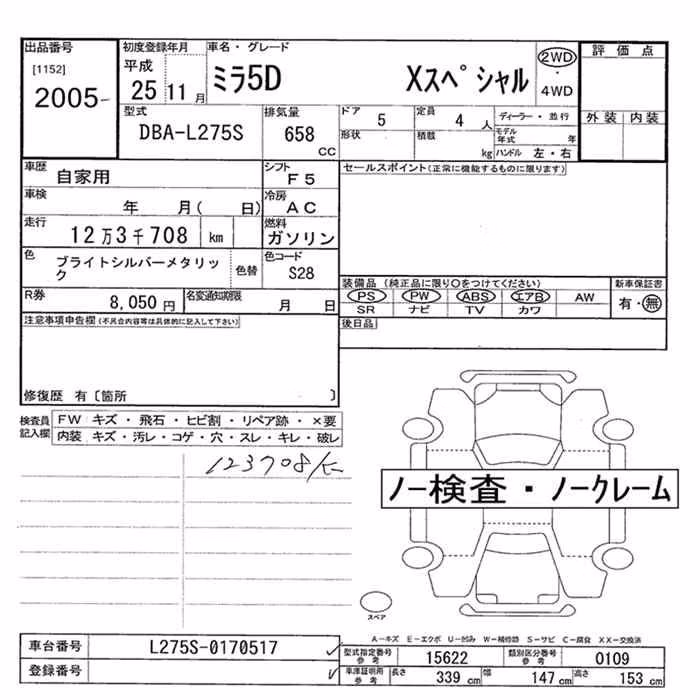 出品番号
[1152]
2005-
初度登録年月
平成
25 11 月
車名・グレード
ミラ5D Xスペシャル
2WD
・
4WD
評価点
外装 内装
型式
DBA-L275S
排気量
658
CC
ドア 5
定員 4 人
ディーラー・並行
形状
積載 kg
モデル年式 年
ハンドル 左・右
車歴
自家用
シフト
F5
セールスポイント(正常に機能するものに限ります)
車検
年 月( 日)
冷房
AC
走行
12万3千708 km
燃料
ガソリン
色
ブライトシルバーメタリック
色替
色コード
S28
R券
8,050 円
名変通知期限
月 日
装備品 (純正品に限り○をつけてください)
PS PW ABS エアB AW
SR ナビ TV カワ
新車保証書
有・無
後日品
注意事項申告欄(不具合内容等は具体的に記入して下さい)
修復歴 有〔箇所 〕
検査員記入欄
FW キズ・飛石・ヒビ割・リペア跡・×要
内装 キズ・汚レ・コゲ・穴・スレ・キレ・破レ
123708
ノー検査・ノークレーム
スペア
A-キズ E-エクボ U-凹み W-補修跡 S-サビ C-腐食 XX-交換済
車台番号 L275S-0170517
登録番号
型式指定番号 参考 15622
類別区分番号 参考 0109
車庫証明用 参考
長さ 339 cm 幅 147 cm 高さ 153 cm